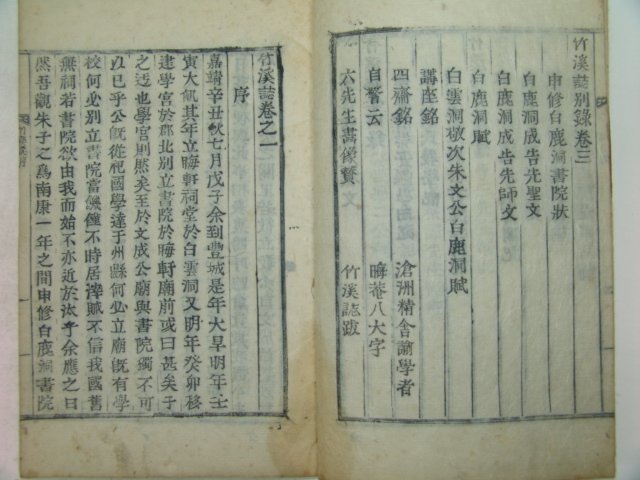 竹溪誌別錄卷三
申修白鹿洞書院狀
白鹿洞成告先聖文
白鹿洞成告先師文
白鹿洞賦
白雲洞敬次朱文公白鹿洞賦
講座銘
四齋銘 滄洲精舍諭學者
自警云 晦菴八大字
六先生畵像贊 竹溪誌跋
竹溪誌卷之一
序
嘉靖辛丑秋七月戊子余到豐城是年大旱明年壬
寅大飢其年立晦軒祠堂於白雲洞又明年癸卯移
建學宮於郡北別立書院於晦軒廟前或曰甚矣子
之迂也學宮則然矣至於文成公廟與書院獨不可
以已乎公旣從祀國學達于州縣何必立廟旣有學
校何必別立書院當飢饉不時居滓賦不信我國舊
無祠若書院欲由我而始不亦近於汰乎余應之曰
然吾觀朱子之爲南康一年之間申修白鹿洞書院